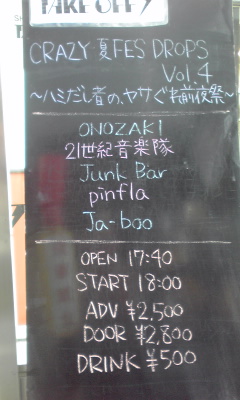 TAKE OFF7
CRAZY 夏FES DROPS
Vol.4
〜ハミだし者の、ヤサぐれ前夜祭〜
ONOZAKI
21世紀音楽隊
Junk Bar
pinfla
Ja-boo
OPEN 17:40
START 18:00
ADV ¥2,500
DOOR ¥2,800
DRINK ¥500